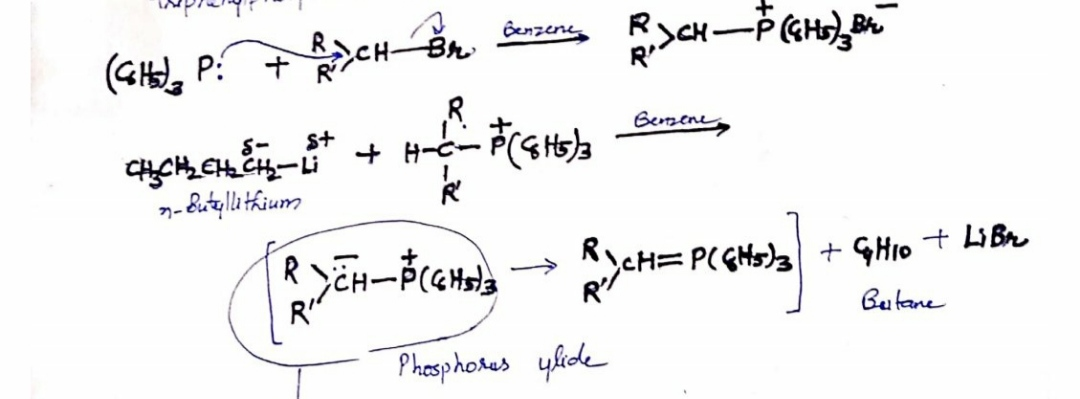 (C6H5)3 P: + R R' >CH—Br Benzene → R R' >CH—P+(C6H5)3Br−
CH3CH2CH2CH2 δ-—Li δ+ + H—C(R)(R')—P+(C6H5)3 Benzene →
n-Butyllithium
[R R' >C̈H−—P+(C6H5)3 → R R' >CH=P(C6H5)3] + C4H10 + LiBr
Butane
Phosphorus ylide